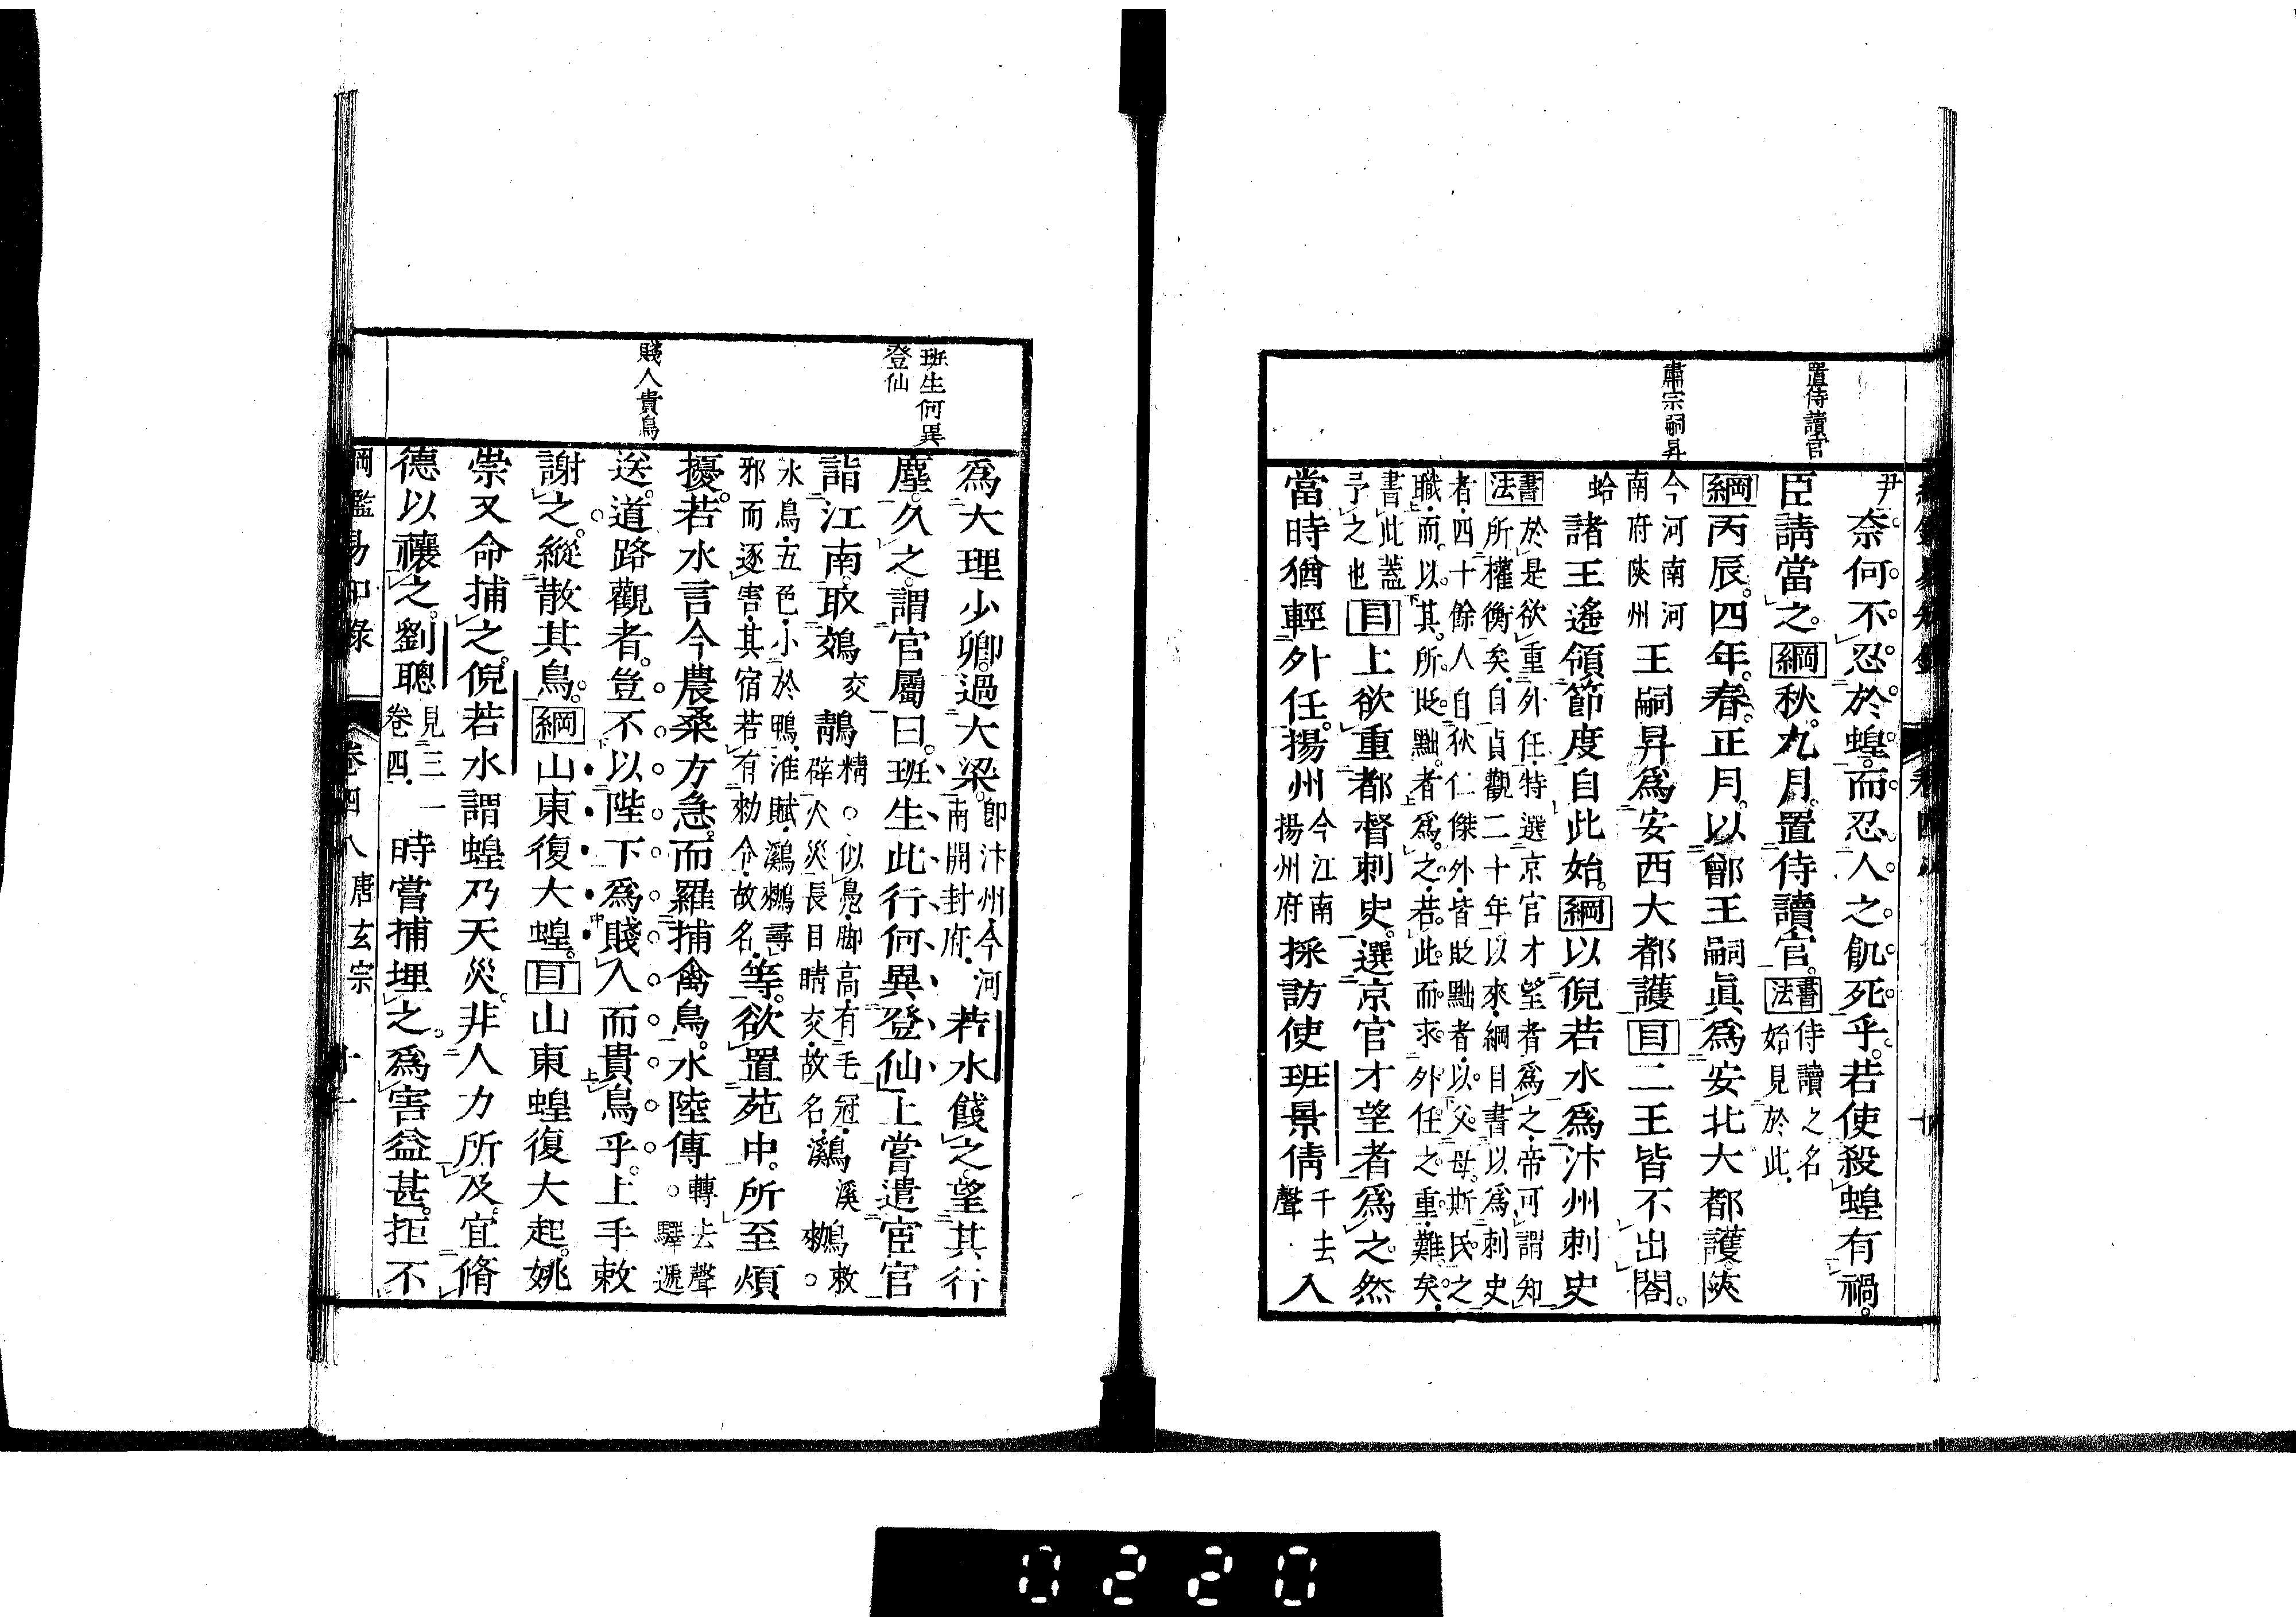 置侍讀官
肅宗嗣昇
尹。奈何不忍於蝗。而忍人之飢死乎。若使殺蝗有禍。
臣請當之。綱秋。九月。置侍讀官。書法侍讀之名始見於此。
綱丙辰。四年。春。正月。以鄫王嗣眞爲安北大都護。陝
今河南河南府陝州王嗣昇爲安西大都護目二王皆不出閤。
蛤諸王遙領節度自此始。綱以倪若水爲汴州刺史
書法於是欲重外任。特選京官才望者爲之。帝可謂知所權衡矣。自貞觀二十年以來。綱目書以爲刺史
者。四十餘人自狄仁傑外。皆貶黜者。以父母斯民之職。而以其所貶黜者爲之。若此。而求外任之重。難矣。
書此蓋予之也目上欲重都督刺史。選京官才望者爲之。然
當時猶輕外任。揚州今江南揚州府採訪使班景倩千去聲入
班生何異登仙
賤人貴鳥
爲大理少卿。過大梁。卽汴州。今河南開封府。若水餞之。望其行
塵。久之。謂官屬曰。班生此行何異登仙上嘗遣宦官
詣江南。取鵁交鶄精。似鳧。脚高有毛冠。辟火災長目睛交。故名。鸂溪鶒敕。
水鳥。五色。小於鴨。淮賦。鸂鶒尋邪而逐害。其宿若有勅令。故名。等。欲置苑中。所至煩
擾。若水言今農桑方急。而羅捕禽鳥。水陸傳轉去聲。驛遞
送。道路觀者。豈不以陛下爲賤人而貴鳥乎。上手敕
謝之。縱散其鳥。綱山東復大蝗。目山東蝗復大起。姚
崇又命捕之。倪若水謂蝗乃天災。非人力所及。宜脩
德以禳之。劉聰見三一卷四。時嘗捕埋之。爲害益甚。拒不
綱鑑易知錄 卷四八 唐玄宗 十一